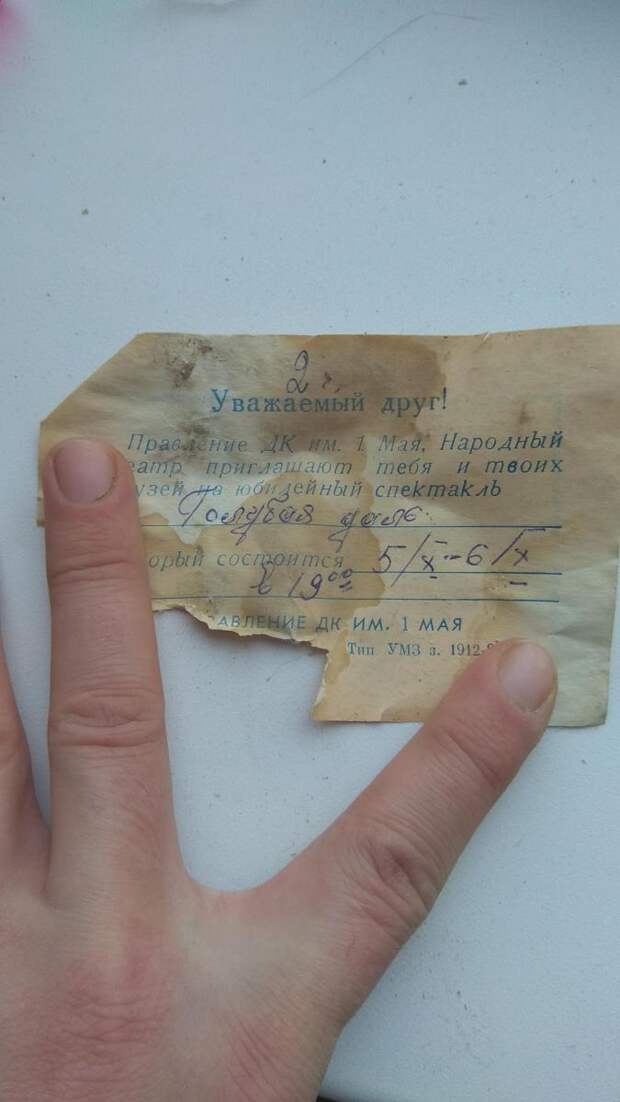 2
Уважаемый друг!
Правление ДК им. 1 Мая, Народный
еатр приглашают тебя и твоих
узей на юбилейный спектакль
Голубая даль
торый состоится 5/X-6/X
в 19⁰⁰
АВЛЕНИЕ ДК ИМ. 1 МАЯ
Тип УМЗ з. 1912-